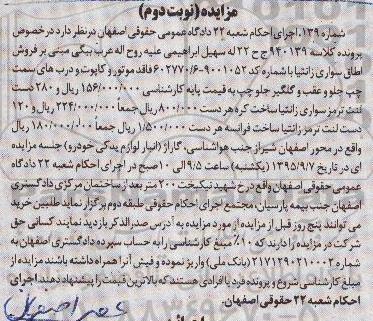 مزایده (نوبت دوم)
شماره ۱۳۹، اجرای احکام شعبه ۲۲ دادگاه عمومی حقوقی اصفهان در نظر دارد در خصوص
پرونده کلاسه ۹۴۰۱۳۹ ج ح ۲۲ له سهیل ابراهیمی علیه روح اله عرب بیگی مبنی بر فروش
اطاق سواری زانتیا با شماره کد ۹۰۰۱۰۵۲-۶۰۲۷۷۰۶ فاقد موتور و کاپوت و درب های سمت
چپ جلو و عقب و گلگیر جلو چپ به قیمت پایه کارشناسی ۱۵۶/۰۰۰/۰۰۰ ریال و ۲۸۰ دست
لنت ترمز سواری زانتیا ساخت کره هر دست ۸۰۰/۰۰۰ ریال جمعاً ۲۲۴/۰۰۰/۰۰۰ ریال و ۱۲۰
دست لنت ترمز زانتیا ساخت فرانسه هر دست ۱/۵۰۰/۰۰۰ ریال جمعاً ۱۸۰/۰۰۰/۰۰۰ ریال
واقع در محور اصفهان شیراز جنب هواشناسی، گاراژ (انبار لوازم یدکی خودرو) جلسه مزایده
ای در تاریخ ۱۳۹۵/۹/۷ (یکشنبه) ساعت ۹/۵ الی ۱۰ صبح در اجرای احکام شعبه ۲۲ دادگاه
عمومی حقوقی اصفهان واقع در خ شهید نیکبخت ۲۰۰ متر بعد از ساختمان مرکزی دادگستری
اصفهان جنب بیمه پارسیان، مجتمع اجرای احکام حقوقی طبقه دوم برگزار نماید طالبین خرید
می توانند پنج روز قبل از مزایده از مورد مزایده به آدرس صدرالذکر بازدید نمایند کسانی حق
شرکت در مزایده را دارند که ۱۰٪ مبلغ کارشناسی را به حساب سپرده دادگستری اصفهان به
شماره ۲۱۷۱۲۹۰۲۱۰۰۰۲ (بانک ملی) واریز نموده و فیش آنرا همراه داشته باشند مزایده از
مبلغ کارشناسی شروع و پرونده فرد یا افرادی هستند که بالاترین قیمت را پیشنهاد دهند. اجرای
احکام شعبه ۲۲ حقوقی اصفهان.